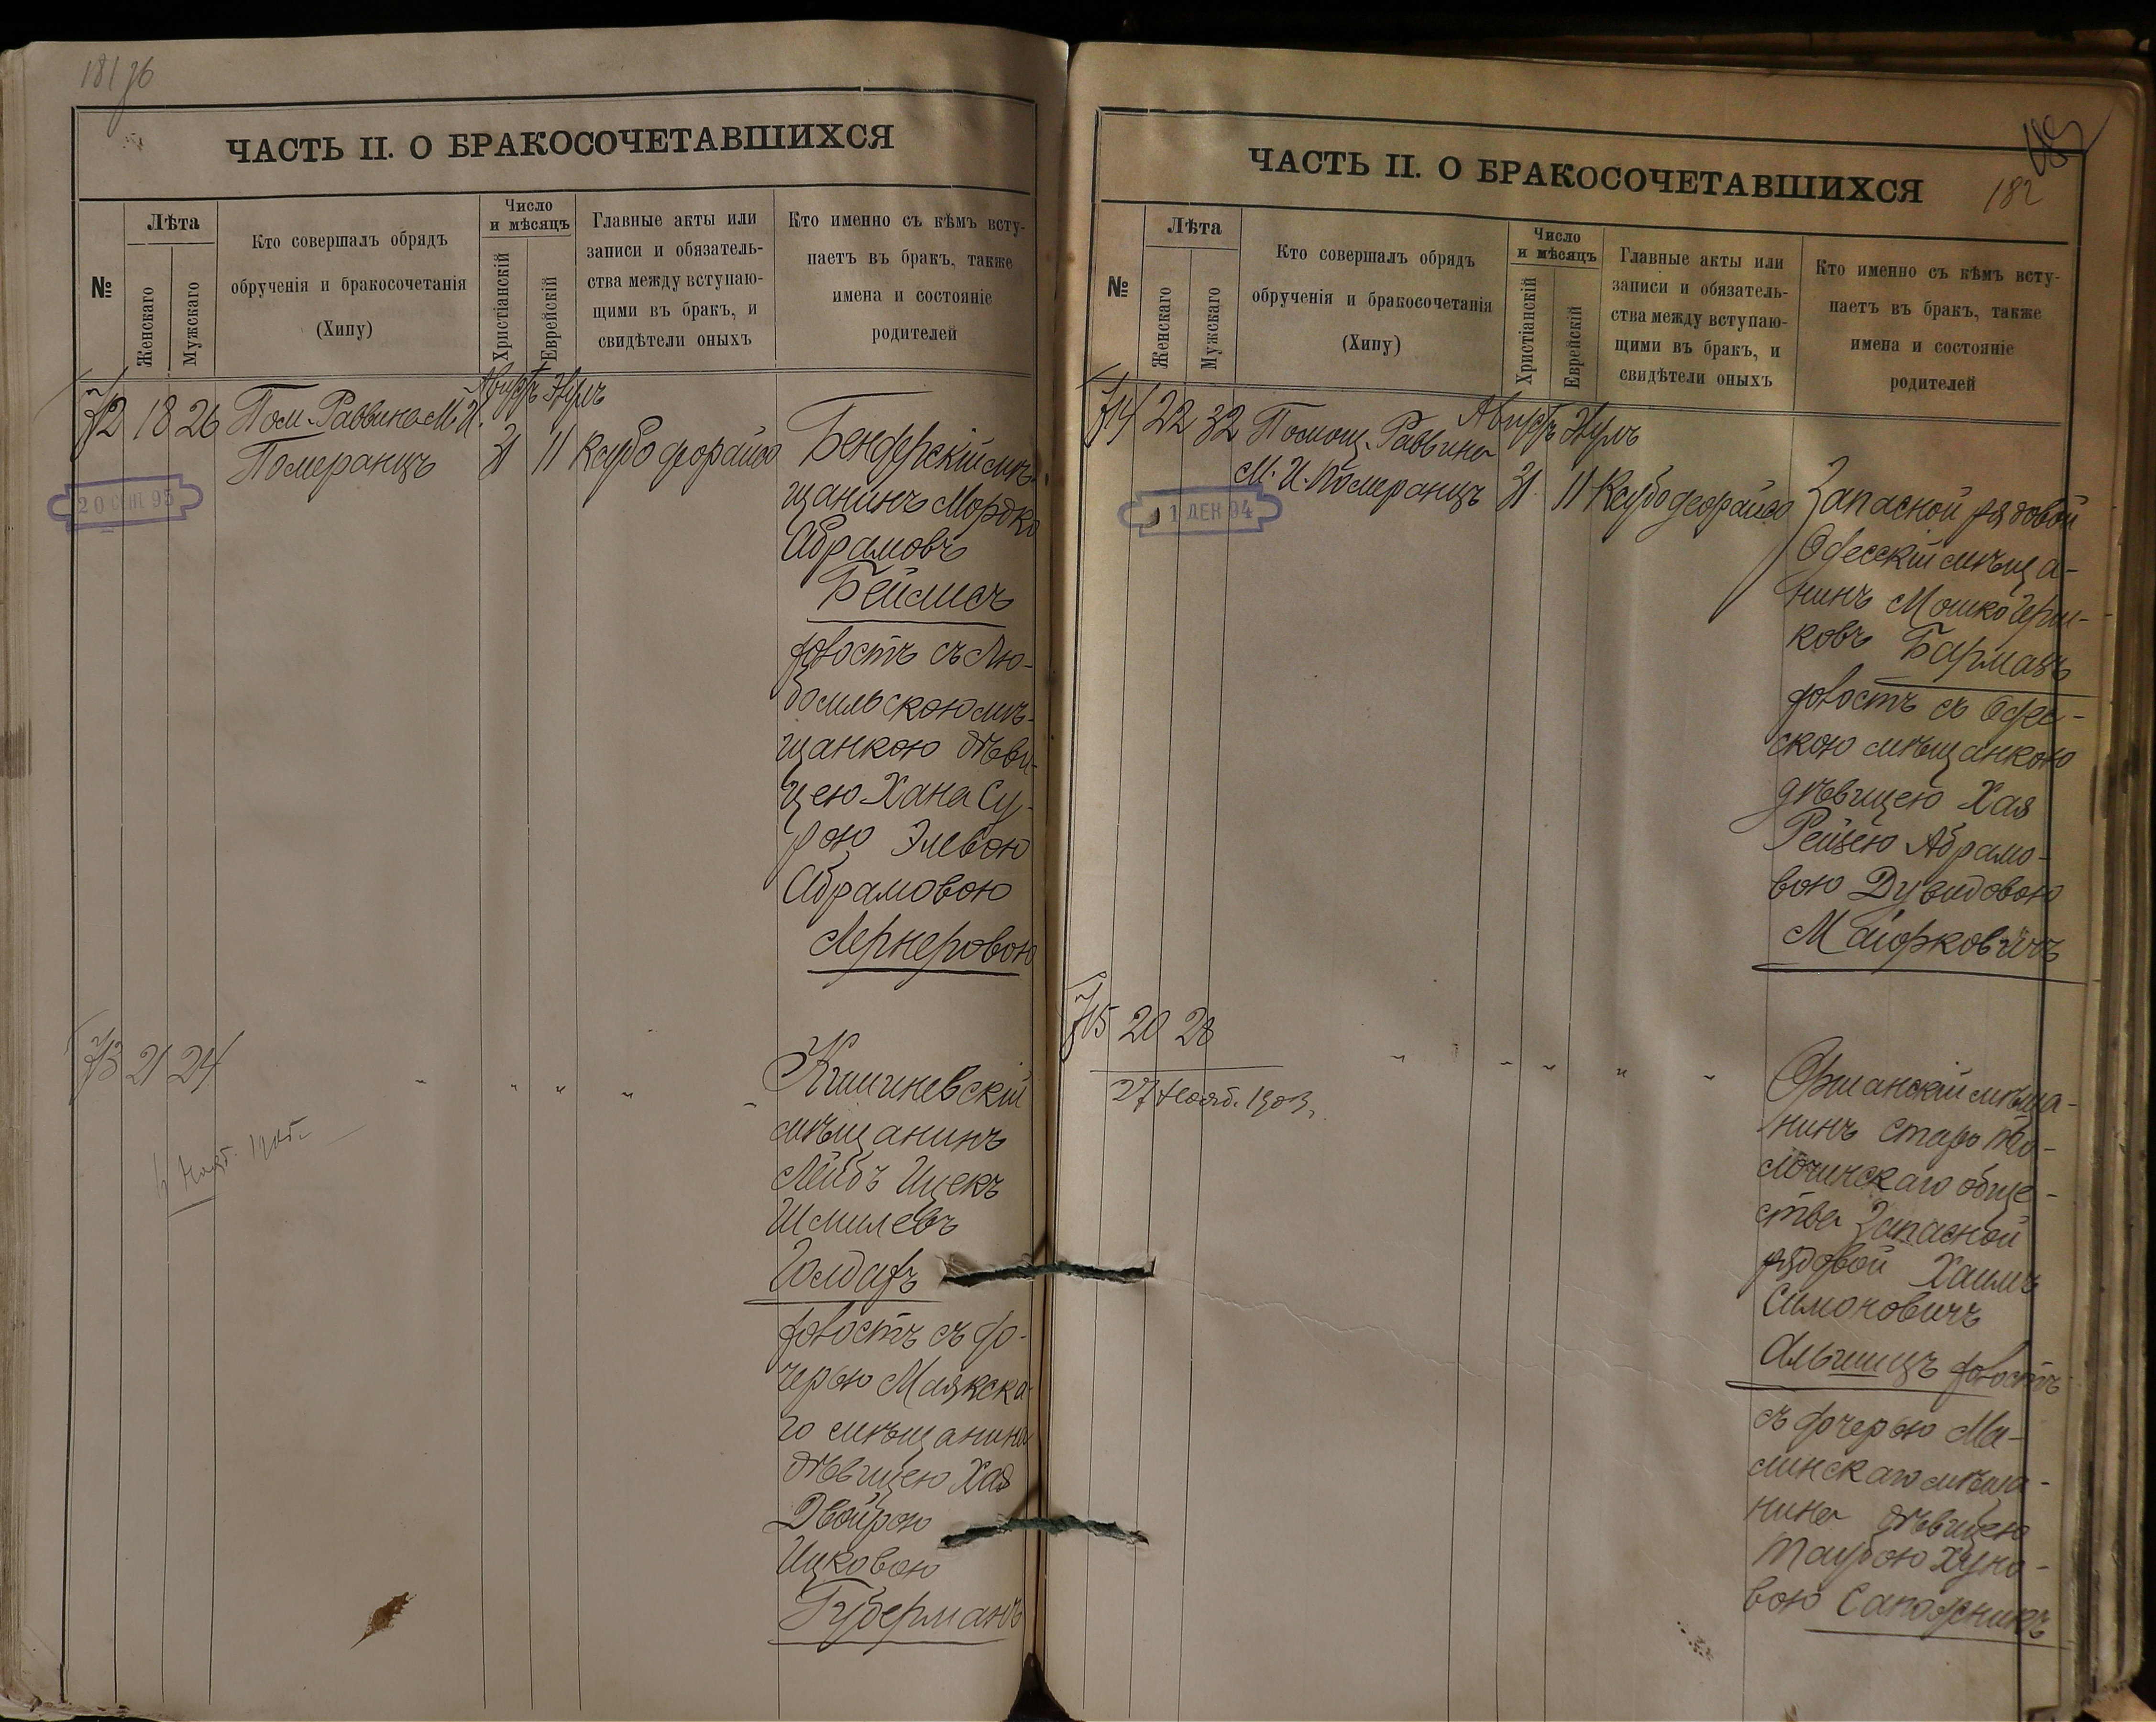 181 об
ЧАСТЬ II. О БРАКОСОЧЕТАВШИХСЯ
№
Лѣта
Женскаго
Мужскаго
Кто совершалъ обрядъ
обрученія и бракосочетанія
(Хипу)
Число
и мѣсяцъ
Христіанскій
Еврейскій
Главные акты или
записи и обязатель-
ства между вступаю-
щими въ бракъ, и
свидѣтели оныхъ
Кто именно съ кѣмъ всту-
паетъ въ бракъ, также
имена и состояніе
родителей
712 18 26 Пом. Раввина М. И.
Померанцъ
Августъ
31 11
20 СЕН 95
Бендерскій мѣ-
щанинъ Мордко
Абрамовъ
Бейлисъ
холостъ съ Лю-
бомльскою мѣ-
щанкою дѣви-
цею Хана Су-
рою Элевою
Абрамовою
Лернеровою
713 21 24
" " " "
Кишиневскій
мѣщанинъ
Лейбъ Ицекъ
Шмилевъ
холостъ съ до-
черью Маякска-
го мѣщанина
дѣвицею Хая
Двойрою
Ицковою
Губерманъ
182
ЧАСТЬ II. О БРАКОСОЧЕТАВШИХСЯ
№
Лѣта
Женскаго
Мужскаго
Кто совершалъ обрядъ
обрученія и бракосочетанія
(Хипу)
Число
и мѣсяцъ
Христіанскій
Еврейскій
Главные акты или
записи и обязатель-
ства между вступаю-
щими въ бракъ, и
свидѣтели оныхъ
Кто именно съ кѣмъ всту-
паетъ въ бракъ, также
имена и состояніе
родителей
714 22 32 Помощ. Раввина
М. И. Померанцъ
Августъ
31 11
1 ДЕК 94
Запасной рядовой
Одесскій мѣща-
нинъ Мошко Герш-
ковъ Барманъ
холостъ съ Одес-
скою мѣщанкою
дѣвицею Хая
Рейзею Абрамо-
вою Дувидовою
Маіорковичъ
715 20 28
27 Нояб. 1903
" " " " "
Оршанскій мѣща-
нинъ Старо То-
лочинскаго обще-
ства Запасной
рядовой Хаимъ
Симоновичъ
холостъ
съ дочерью Ма-
линскаго мѣща-
нина дѣвицею
Таубою Хуно-
вою Сапожникъ